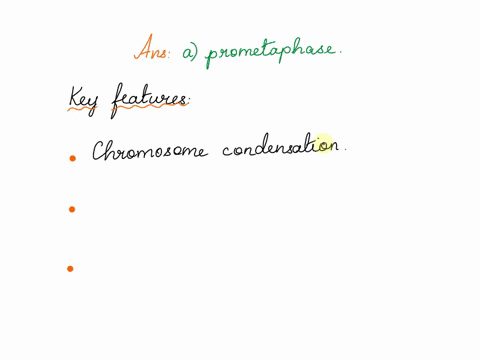 Ans: a) prometaphase.
Key features:
• Chromosome condensation.
•
•